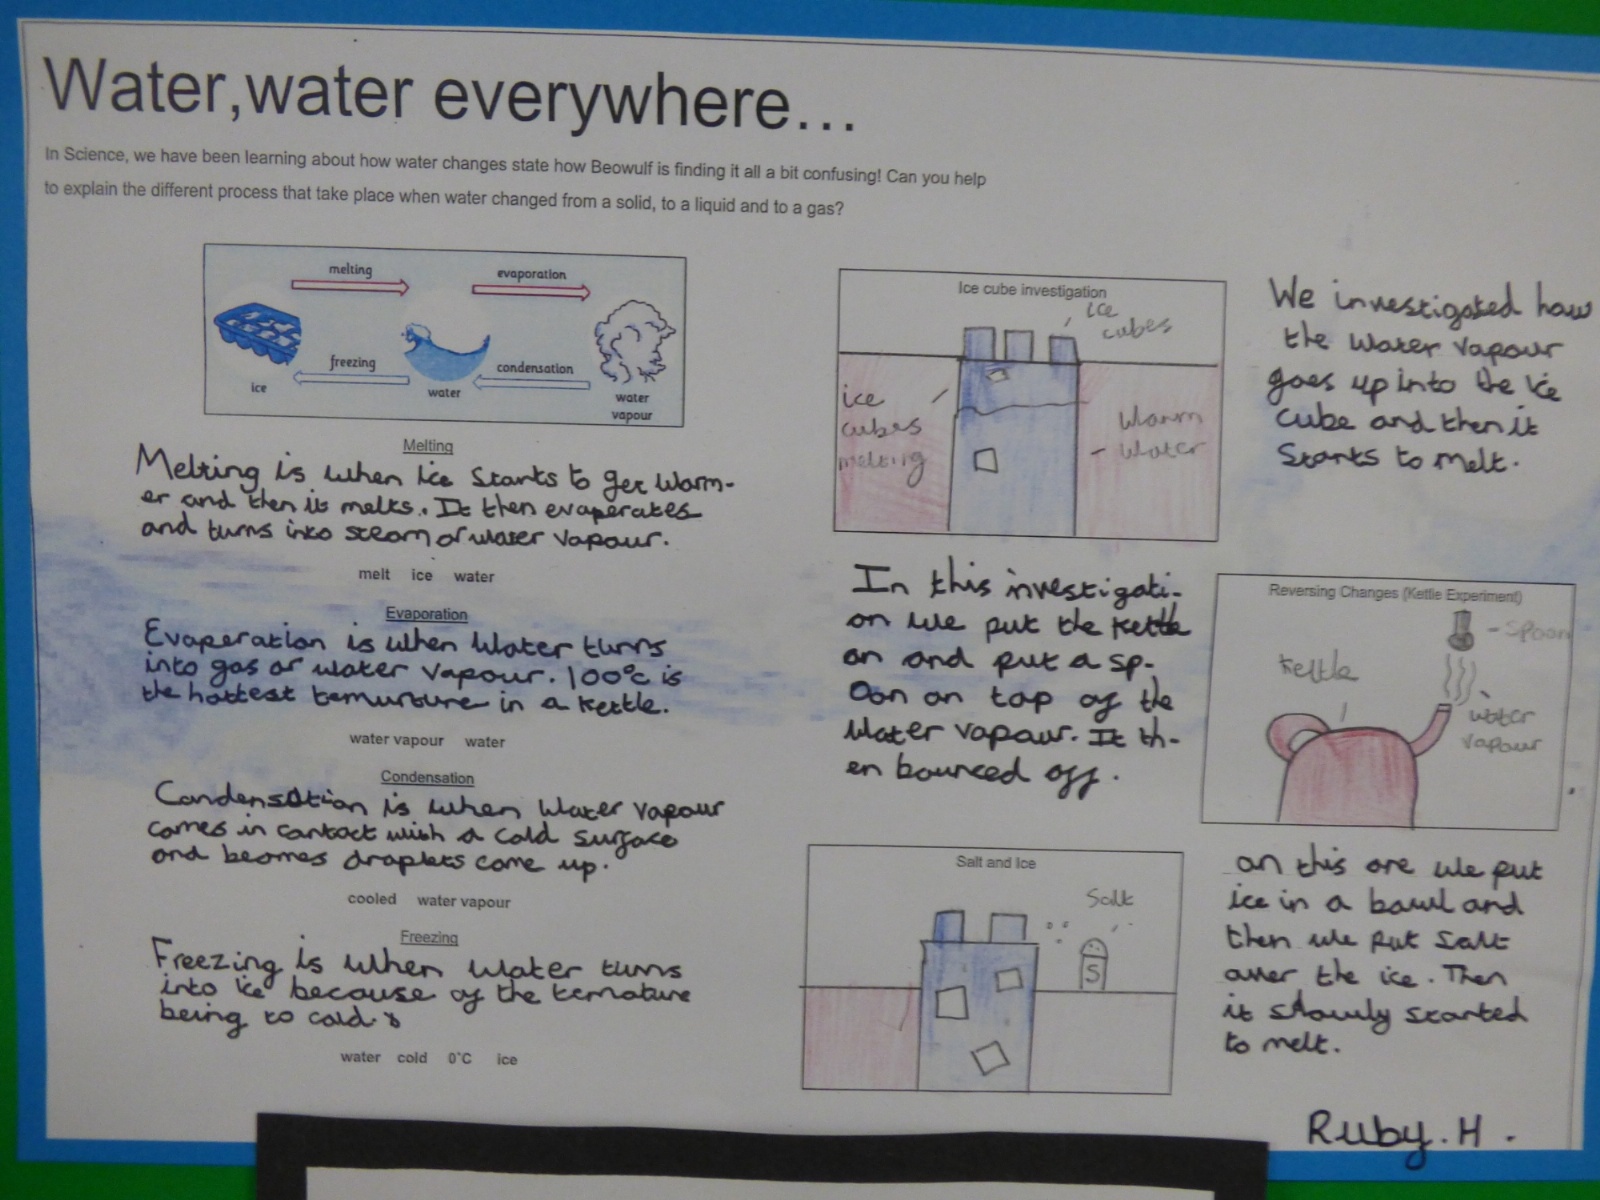 Water,water everywhere...
In Science, we have been learning about how water changes state how Beowulf is finding it all a bit confusing! Can you help
to explain the different process that take place when water changed from a solid, to a liquid and to a gas?
melting
evaporation
freezing
condensation
ice
water
water
vapour
Melting
Melting is when ice starts to get warm-
er and then it melts. It then evaperates
and turns into steam or water vapour.
melt ice water
Evaporation
Evaperation is when water turns
into gas or water vapour. 100°c is
the hottest temurture in a kettle.
water vapour water
Condensation
Condensation is when water vapour
comes in contact with a cold surface
and becomes draplets come up.
cooled water vapour
Freezing
Freezing is when water turns
into ice because of the temature
being to cold.
water cold 0°C ice
Ice cube investigation
ice
cubes
ice
cubes
melting
warm
water
We investigated how
the water vapour
goes up into the ice
cube and then it
starts to melt.
In this investigati-
on we put the kettle
on and put a sp-
oon on top of the
water vapour. It th-
en bounced off.
Reversing Changes (Kettle Experiment)
spoon
kettle
water
vapour
Salt and Ice
Salt
S
on this one we put
ice in a bowl and
then we put salt
over the ice. Then
it slowly started
to melt.
Ruby.H.